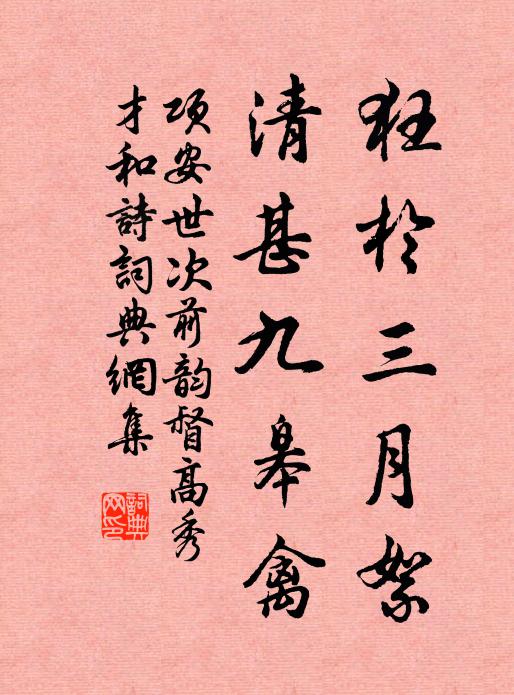 狂於三月絮
清甚九皋禽
項安世次前韵督高秀
才和詩詞典網集
詞典
网印